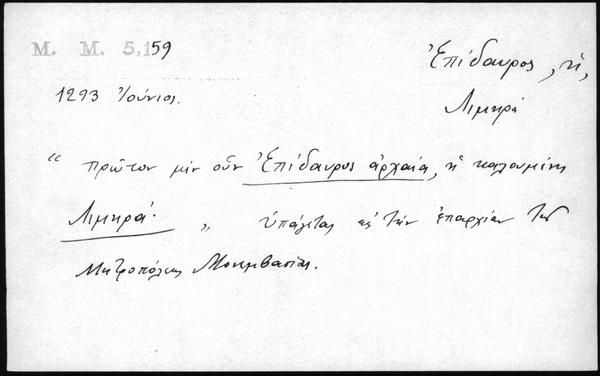 M. M. 5,159
Ἐπίδαυρος, ἡ,
Λιμηρά
1293 Ἰούνιος.
“ πρῶτον μὲν οὖν Ἐπίδαυρος ἀρχαία, ἡ καλουμένη
Λιμηρά· „ ὑπάγεται εἰς τὴν ἐπαρχίαν τῆς
Μητροπόλεως Μονεμβασίας.